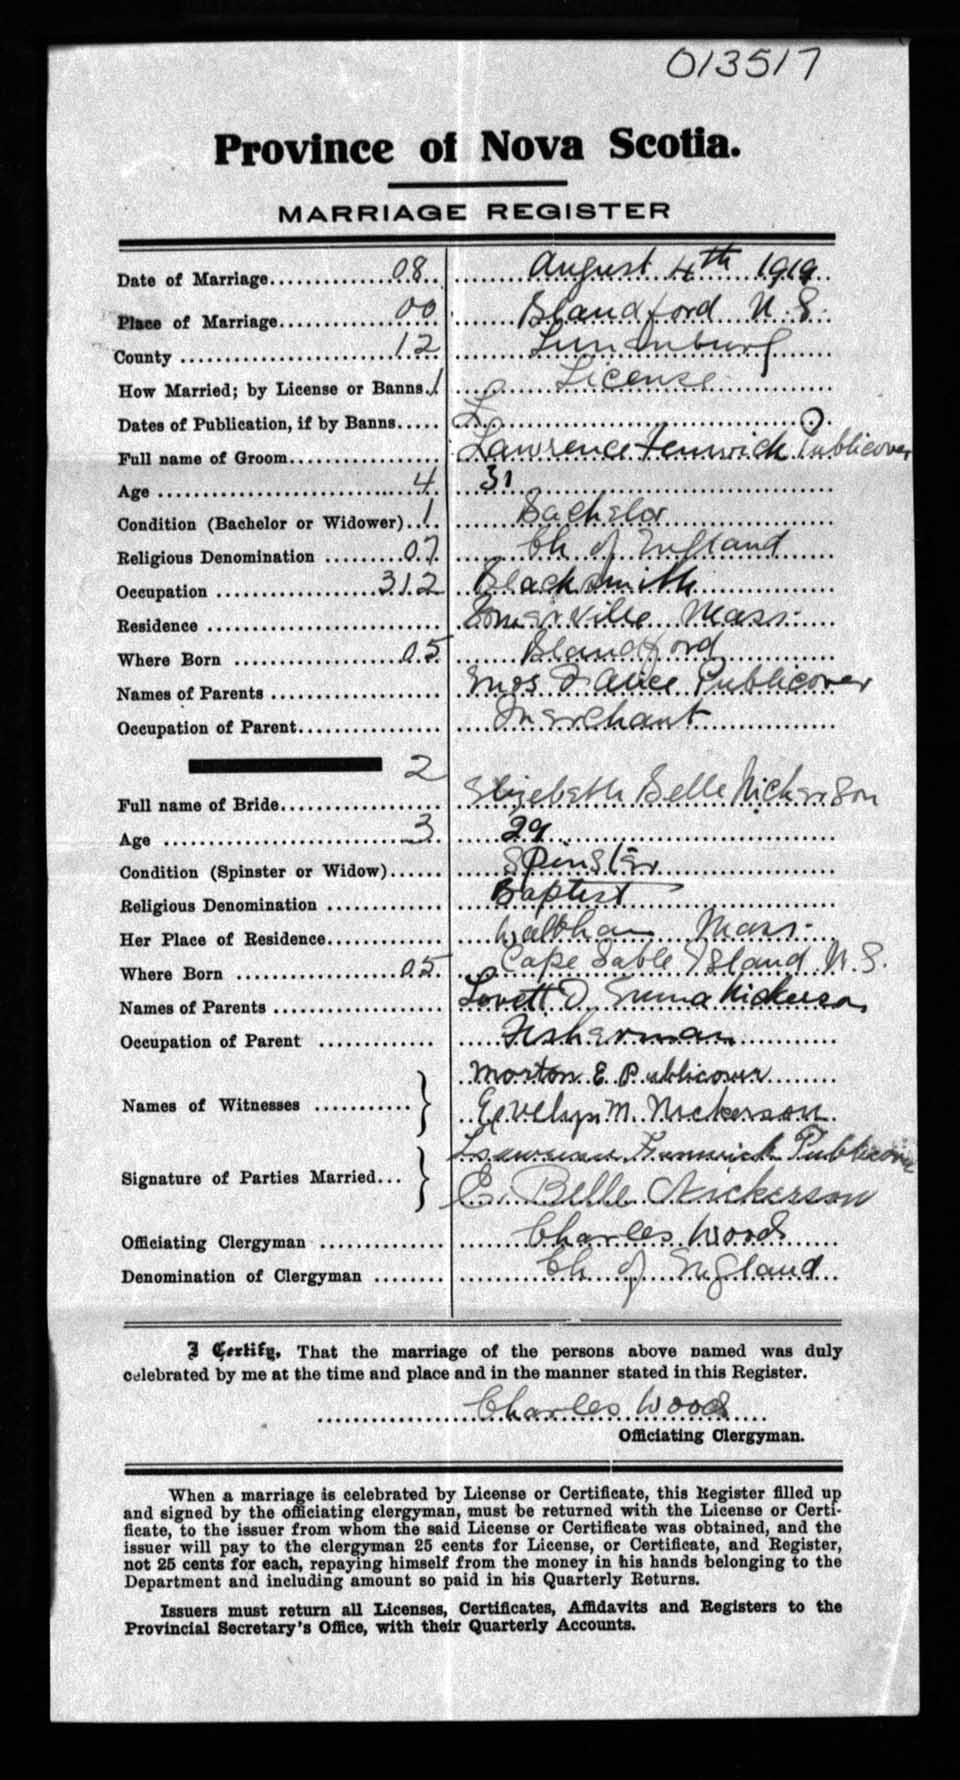 013517
Province of Nova Scotia.
MARRIAGE REGISTER
Date of Marriage 08 August 4th 1919
Place of Marriage 00 Blandford N.S.
County 12 Lunenburg
How Married; by License or Banns. 1 License
Dates of Publication, if by Banns
Full name of Groom Lawrence Fenwick Publicover
Age 4 31
Condition (Bachelor or Widower) 1 Bachelor
Religious Denomination 07 Ch of England
Occupation 312 Blacksmith
Residence Somerville Mass.
Where Born 05 Blandford
Names of Parents Enos Publicover
Occupation of Parent Merchant
2
Full name of Bride Elizebeth Belle Nickerson
Age 3 29
Condition (Spinster or Widow) Spinster
Religious Denomination Baptist
Her Place of Residence Waltham Mass.
Where Born 05 Cape Sable Island N.S.
Names of Parents Lovett Emma Nickerson
Occupation of Parent Fisherman
Morton E Publicover
Names of Witnesses
M. Nickerson
Lawrence Fenwick Publicover
Signature of Parties Married
E. Belle Nickerson
Officiating Clergyman Charles Wood
Denomination of Clergyman Ch of England
I Certify, That the marriage of the persons above named was duly
celebrated by me at the time and place and in the manner stated in this Register.
Charles Wood
Officiating Clergyman.
When a marriage is celebrated by License or Certificate, this Register filled up
and signed by the officiating clergyman, must be returned with the License or Certi-
ficate, to the issuer from whom the said License or Certificate was obtained, and the
issuer will pay to the clergyman 25 cents for License, or Certificate, and Register,
not 25 cents for each, repaying himself from the money in his hands belonging to the
Department and including amount so paid in his Quarterly Returns.
Issuers must return all Licenses, Certificates, Affidavits and Registers to the
Provincial Secretary's Office, with their Quarterly Accounts.